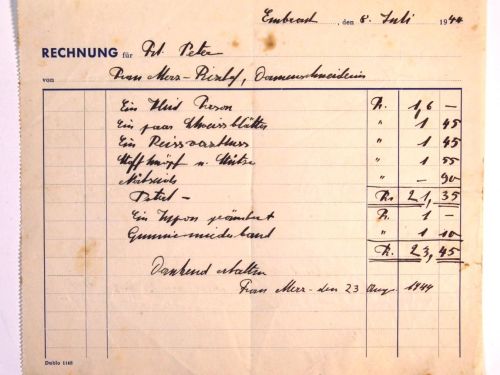 Embrach, den 8. Juli 1944
RECHNUNG für Frl. Peter
von Frau Merz-Bischof, Damenschneiderin
Ein Kleid Fr. 16 —
Ein paar Schweissblätter " 1 45
Ein Reissverschluss " 1 45
Stoffknöpf u. " 1 55
Nähseide " — 90
Total — Fr. 21,35
Ein Jupon geändert Fr. 1 —
Gummi " 1 10
Fr. 23,45
Dankend erhalten
Frau Merz. den 23 Aug. 1944
Dublo 1148